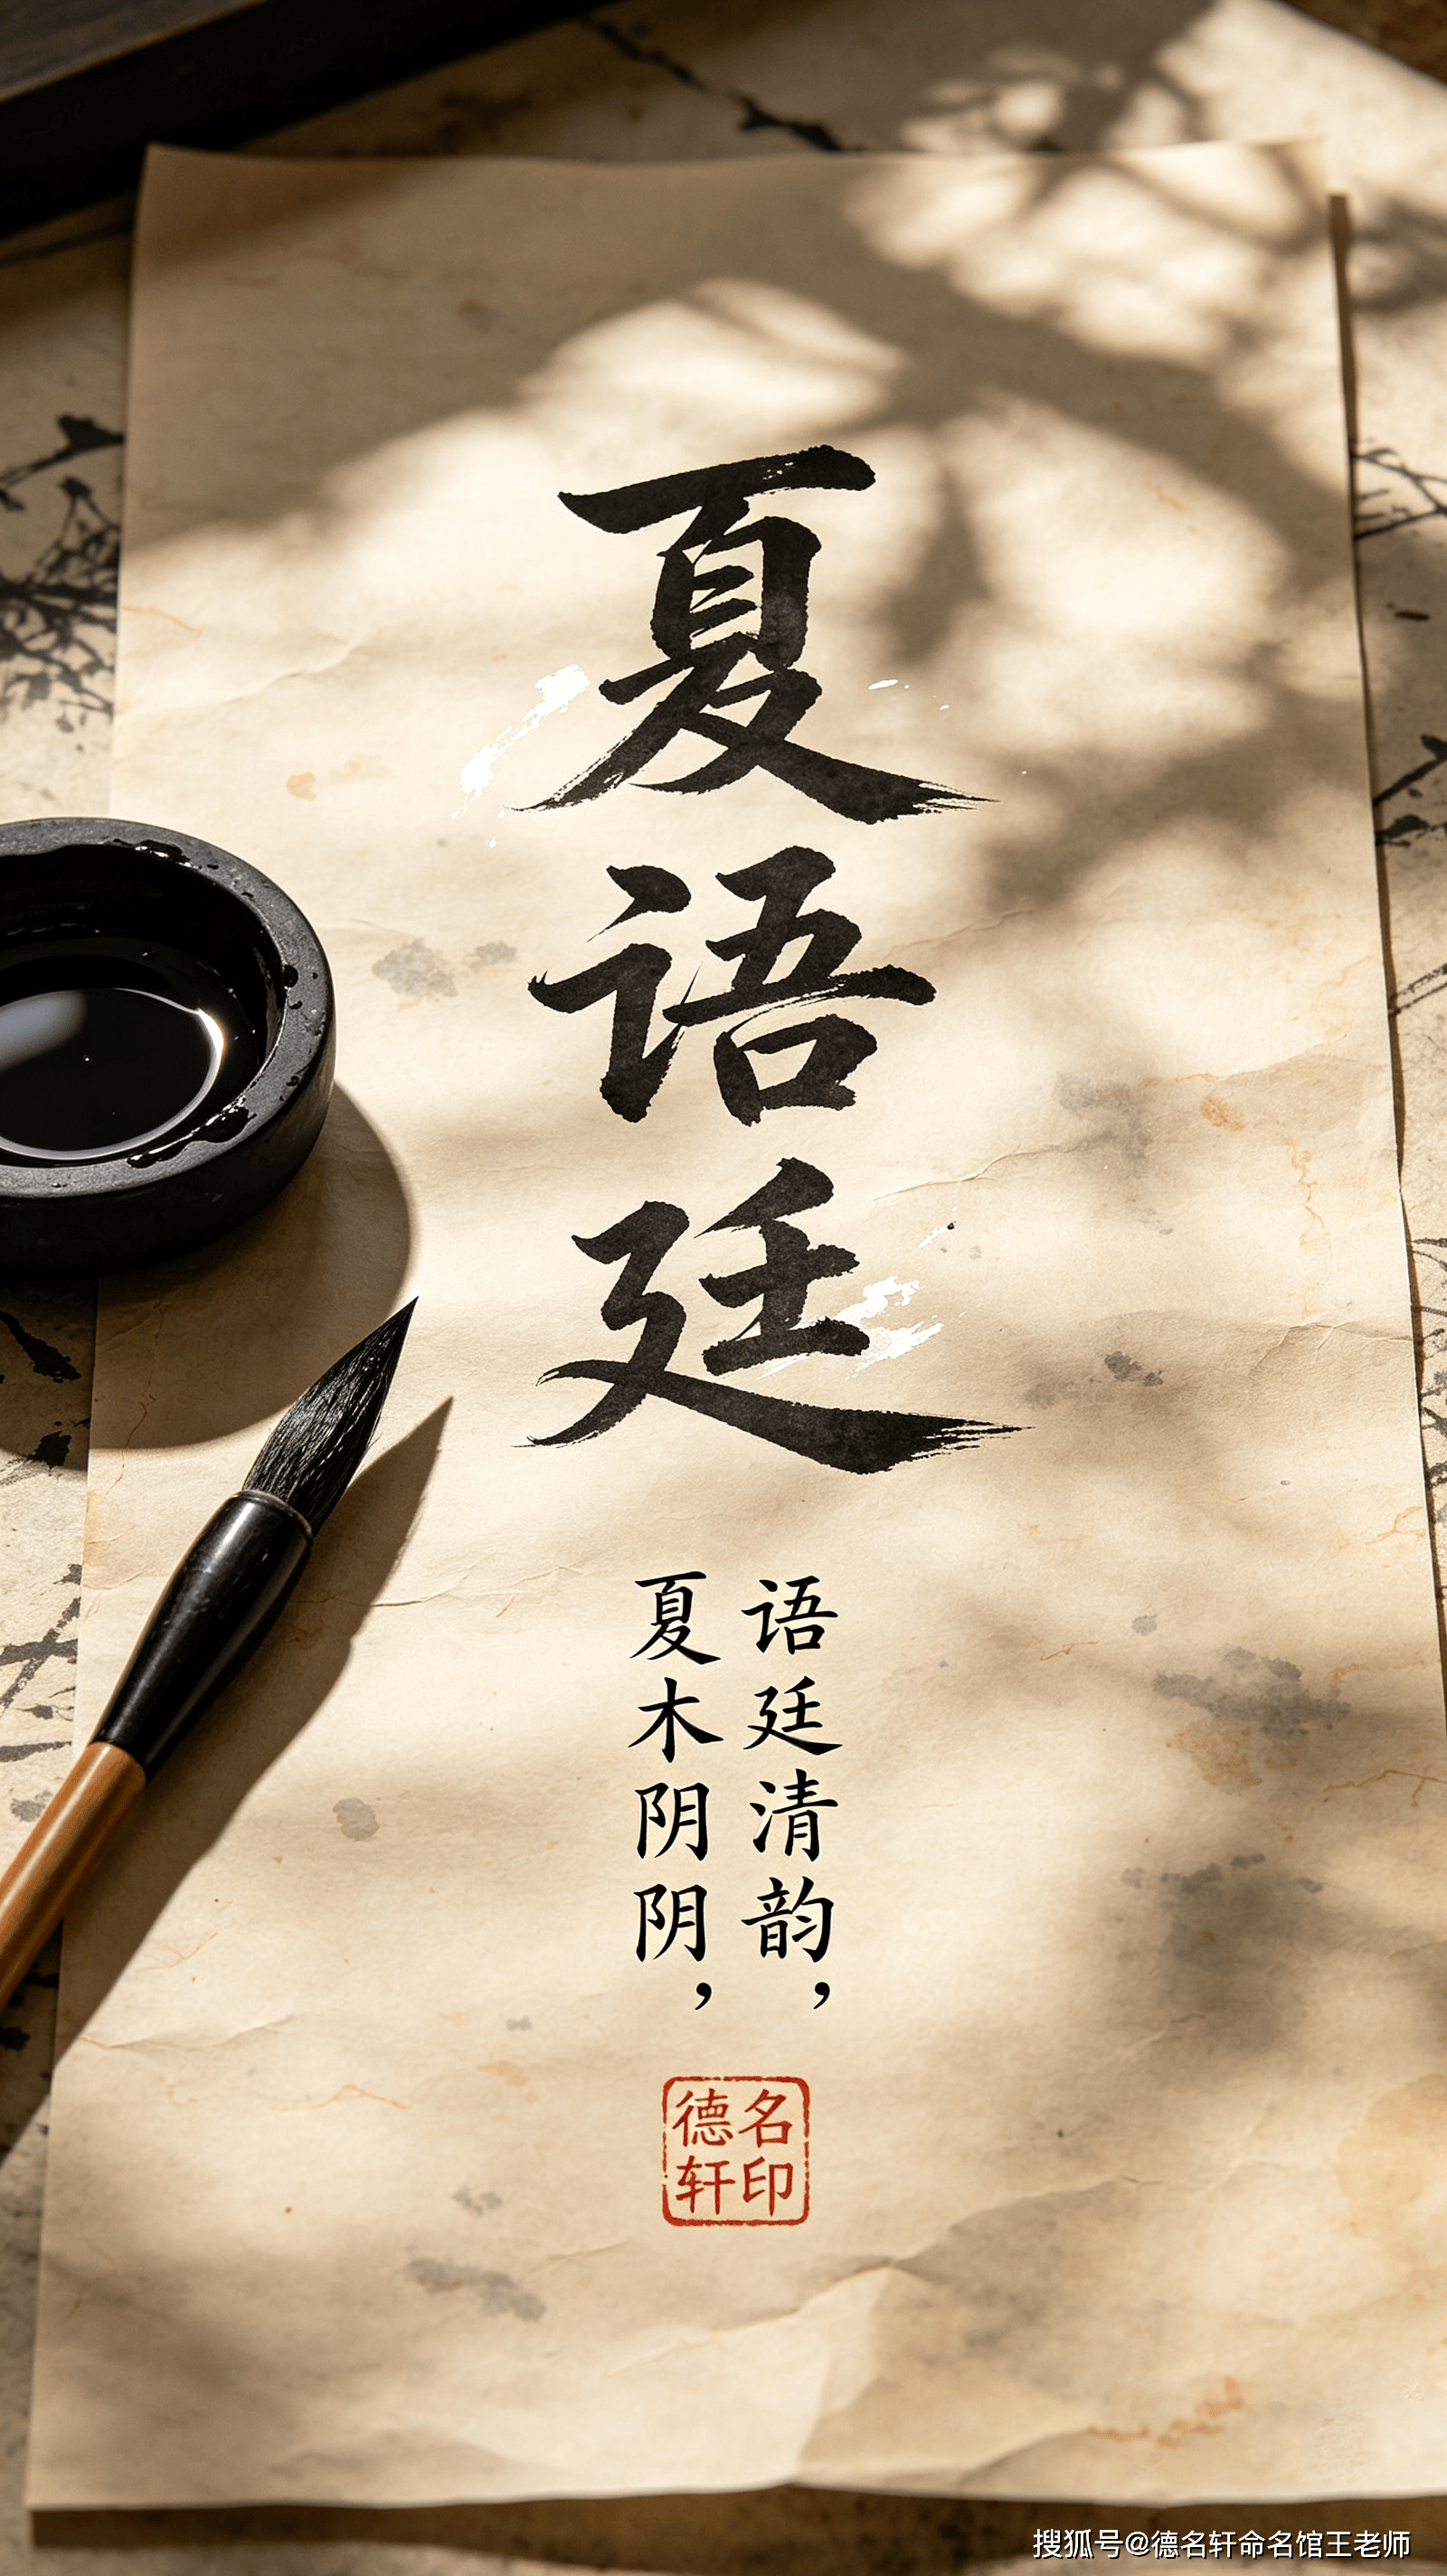 夏语廷
夏木阴阴，
语廷清韵，
德名
轩印
搜狐号@德名轩命名馆王老师